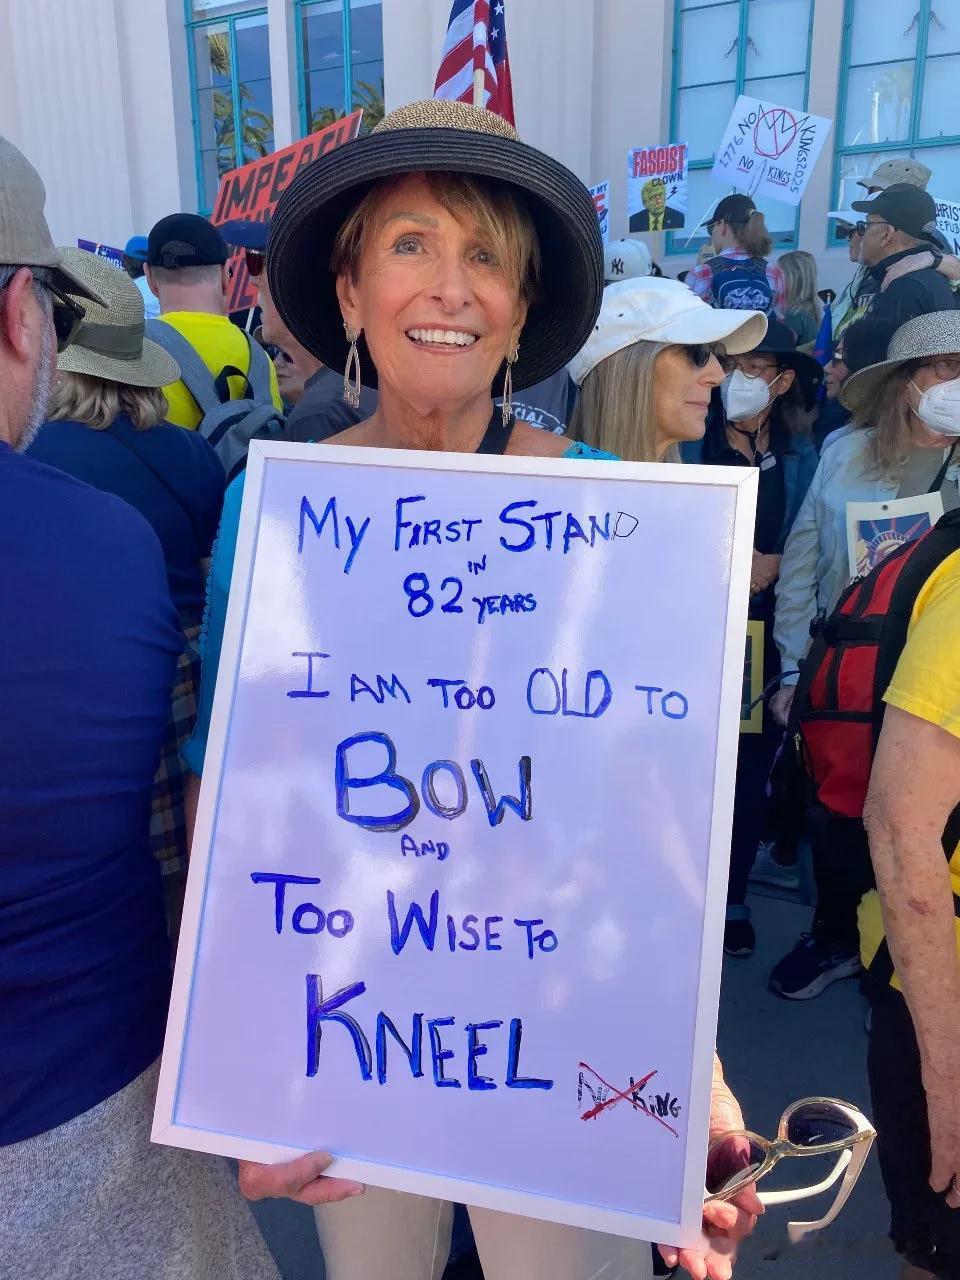 My First Stand
in
82 years
I am too old to
Bow
and
Too Wise to
Kneel
King
IMPEACH
FASCIST
CLOWN
1776 NO
KINGS 2025
NO KINGS
R MY
HRIST
REPUB
NY